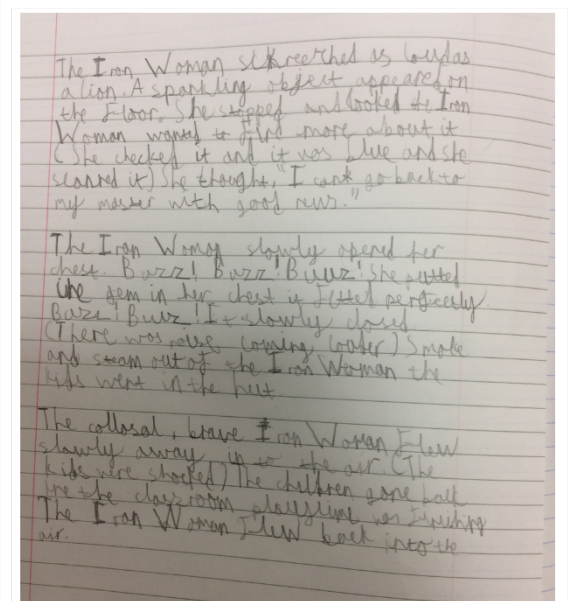 The Iron Woman skreerched as loud as
a lion. A sparkling object appeared on
the floor. She stopped and looked the Iron
Woman wanted to find more about it
(She checked it and it was blue and she
scanned it) She thought, "I cant go back to
my master with good news."
The Iron Woman slowly opened her
chest. Buzz! Buzz! Buuz! She putted
the gem in her chest it fitted perfectly
Buzz! Buzz! It slowly closed
(There was noise coming louder) Smoke
and steam out of the Iron Woman the
kids went in the hut.
The collosal, brave Iron Woman flew
slowly away up to the air. (The
kids were shocked) The children gone back
the classroom playtime was finishing
The Iron Woman flew back into the
air.